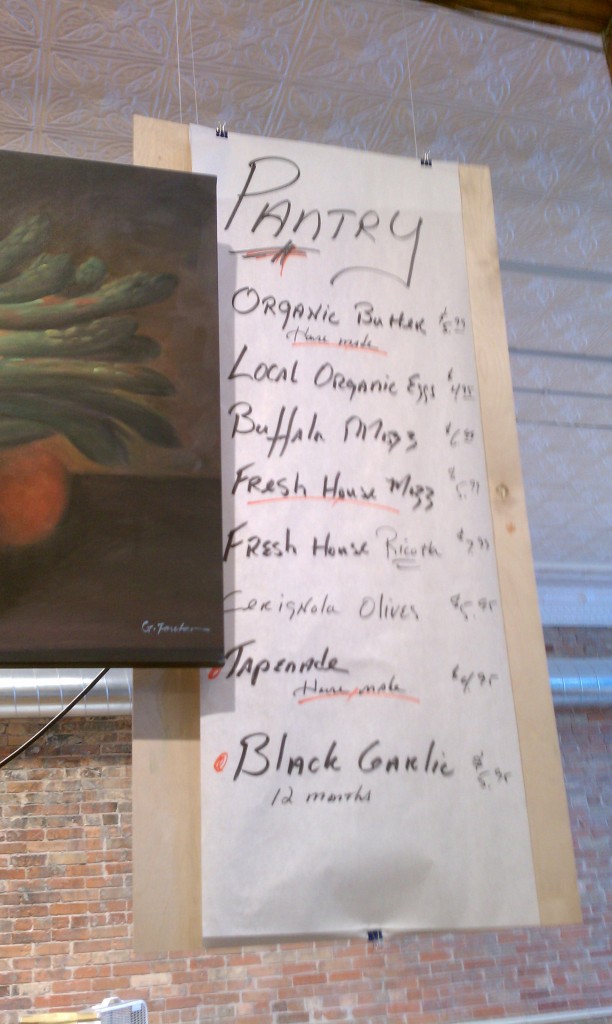 PANTRY
ORGANIC Butter $5.99
House made
LOCAL ORGANIC Eggs $4.95
Buffala Mozz $6.99
FRESH House Mozz $5.99
FRESH House Ricotta $7.99
Cerignola Olives $5.95
TAPENADE $4.95
House made
BLACK GARLIC $5.95
12 months